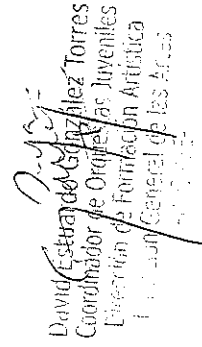 David Estuardo González Torres
Coordinador de Orquestas Juveniles
Dirección de Formación Artística
General de las Artes